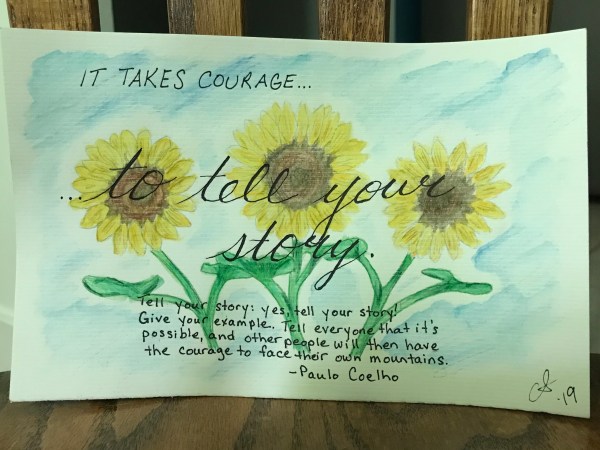 IT TAKES COURAGE...
...to tell your
story.
Tell your story: yes, tell your story!
Give your example. Tell everyone that it's
possible, and other people will then have
the courage to face their own mountains.
-Paulo Coelho
.19